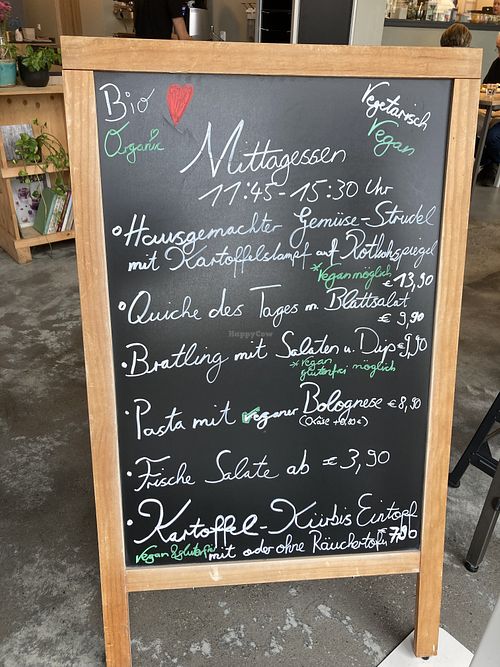 Bio
Organic
Vegetarisch
Vegan
Mittagessen
11:45-15:30 Uhr
Hausgemachter Gemüse-Strudel
mit Kartoffelstampf auf Rotkohlspiegel
*Vegan möglich
€ 13,90
Quiche des Tages m. Blattsalat
€ 9,90
HappyCow
Bratling mit Salaten u. Dip €9,90
*vegan
glutenfrei möglich
Pasta mit veganer Bolognese € 8,90
Frische Salate ab € 3,90
Kartoffel-Kürbis Eintopf
vegan & glutenfrei mit oder ohne Räuchertofu